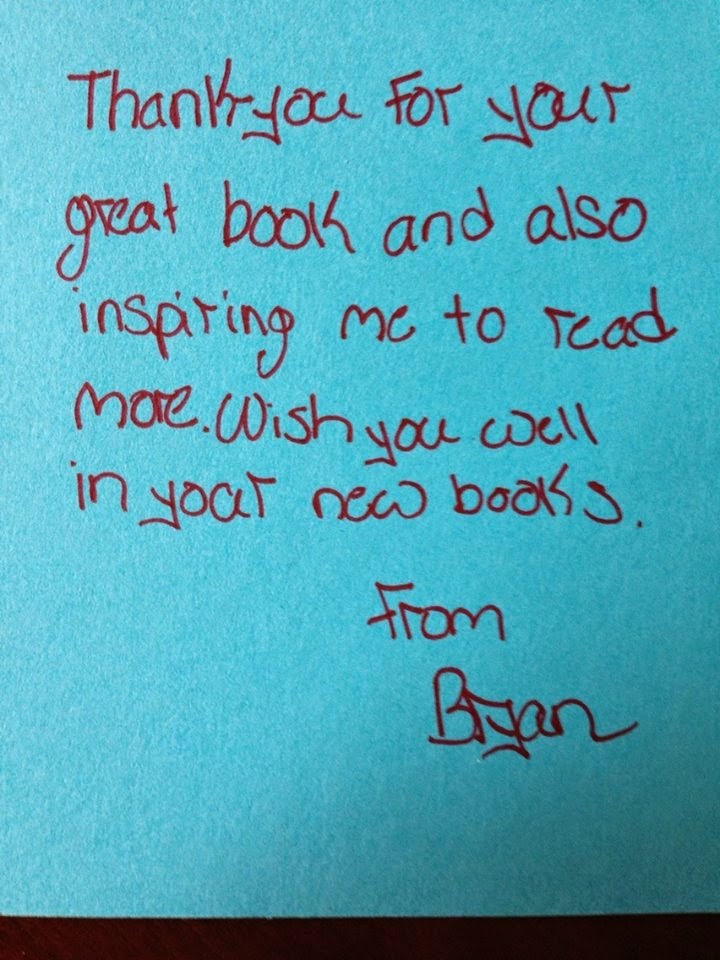 Thankyou For your
great book and also
inspiring me to read
more. Wish you well
in your new books.
From
Bryan